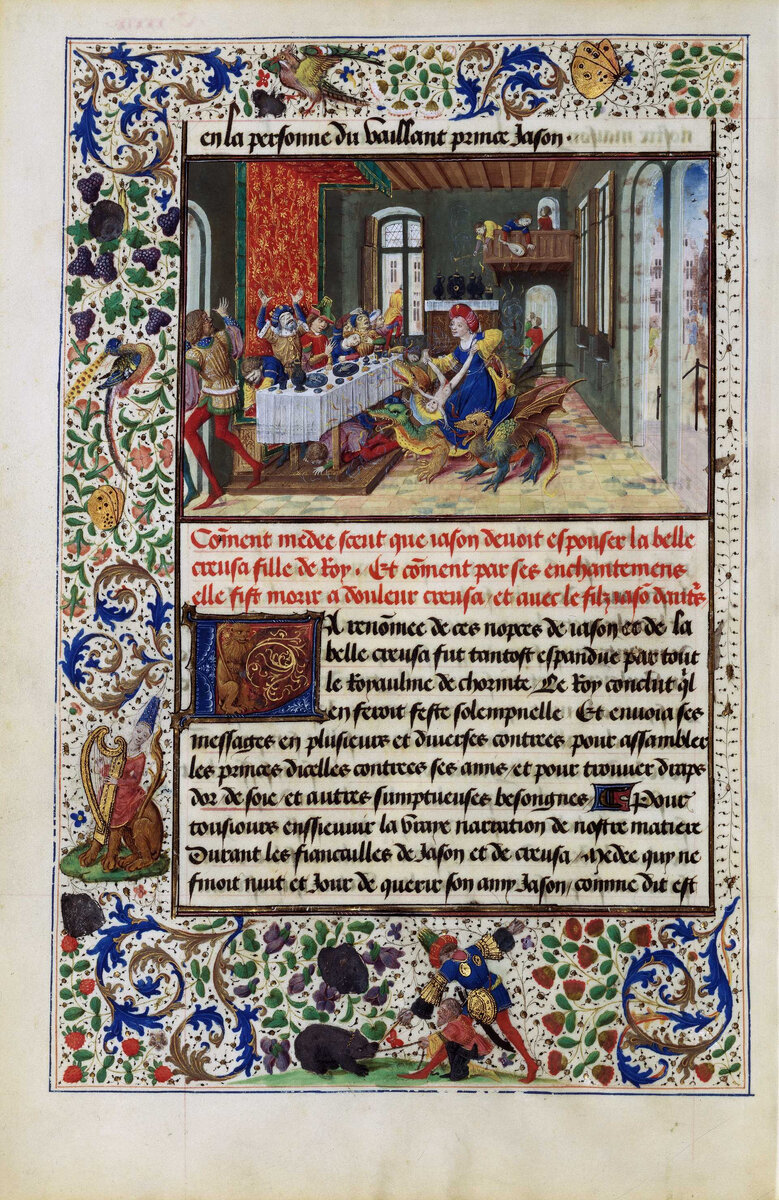 en la personne du vaillant prince Jason .
Co͠ment medee sceut que iason deuoit espouser la belle
creusa fille de Roy . Et co͠ment par ses enchantemens
elle fist morir a douleur creusa et auec le filz iaso͠
La renommee de ces nopces de iason et de la
belle creusa fut tantost espandue par tout
le Royaulme de chorinte Le Roy conclut q̃l
en feroit feste solempnelle Et enuoia ses
messages en plusieurs et diuerses contrees pour assambler
les princes dicelles contrees ses amis et pour trouuer draps
dor de soie et autres sumptueuses besongnes Pour
tousiours enssieuuir la vraye narration de nostre matiere
Durant les fiancailles de Jason et de creusa Medee quy ne
finoit nuit et Jour de querir son amy Jason / comme dit est